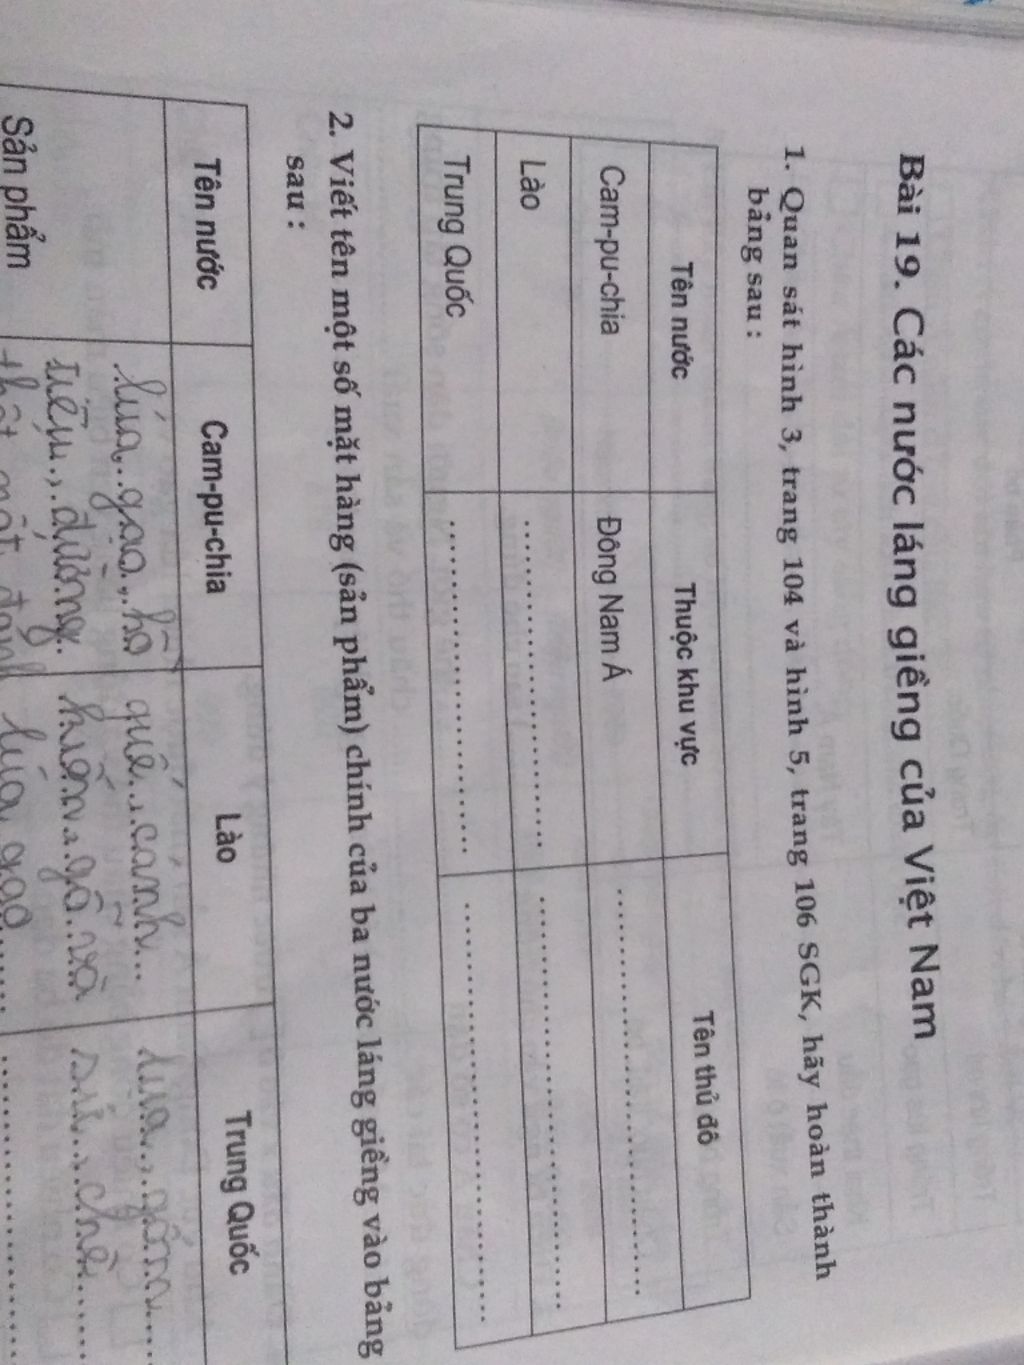 Bài 19. Các nước láng giềng của Việt Nam
1. Quan sát hình 3, trang 104 và hình 5, trang 106 SGK, hãy hoàn thành
bảng sau :
Tên nước Thuộc khu vực Tên thủ đô
Cam-pu-chia Đông Nam Á
Lào
Trung Quốc
2. Viết tên một số mặt hàng (sản phẩm) chính của ba nước láng giềng vào bảng
sau :
Tên nước Cam-pu-chia Lào Trung Quốc
lúa, gạo, hồ quế, cánh lụa, gốm
tiêu, đường kiến, gỗ và sứ, chè
Sản phẩm thốt nốt lúa gạo